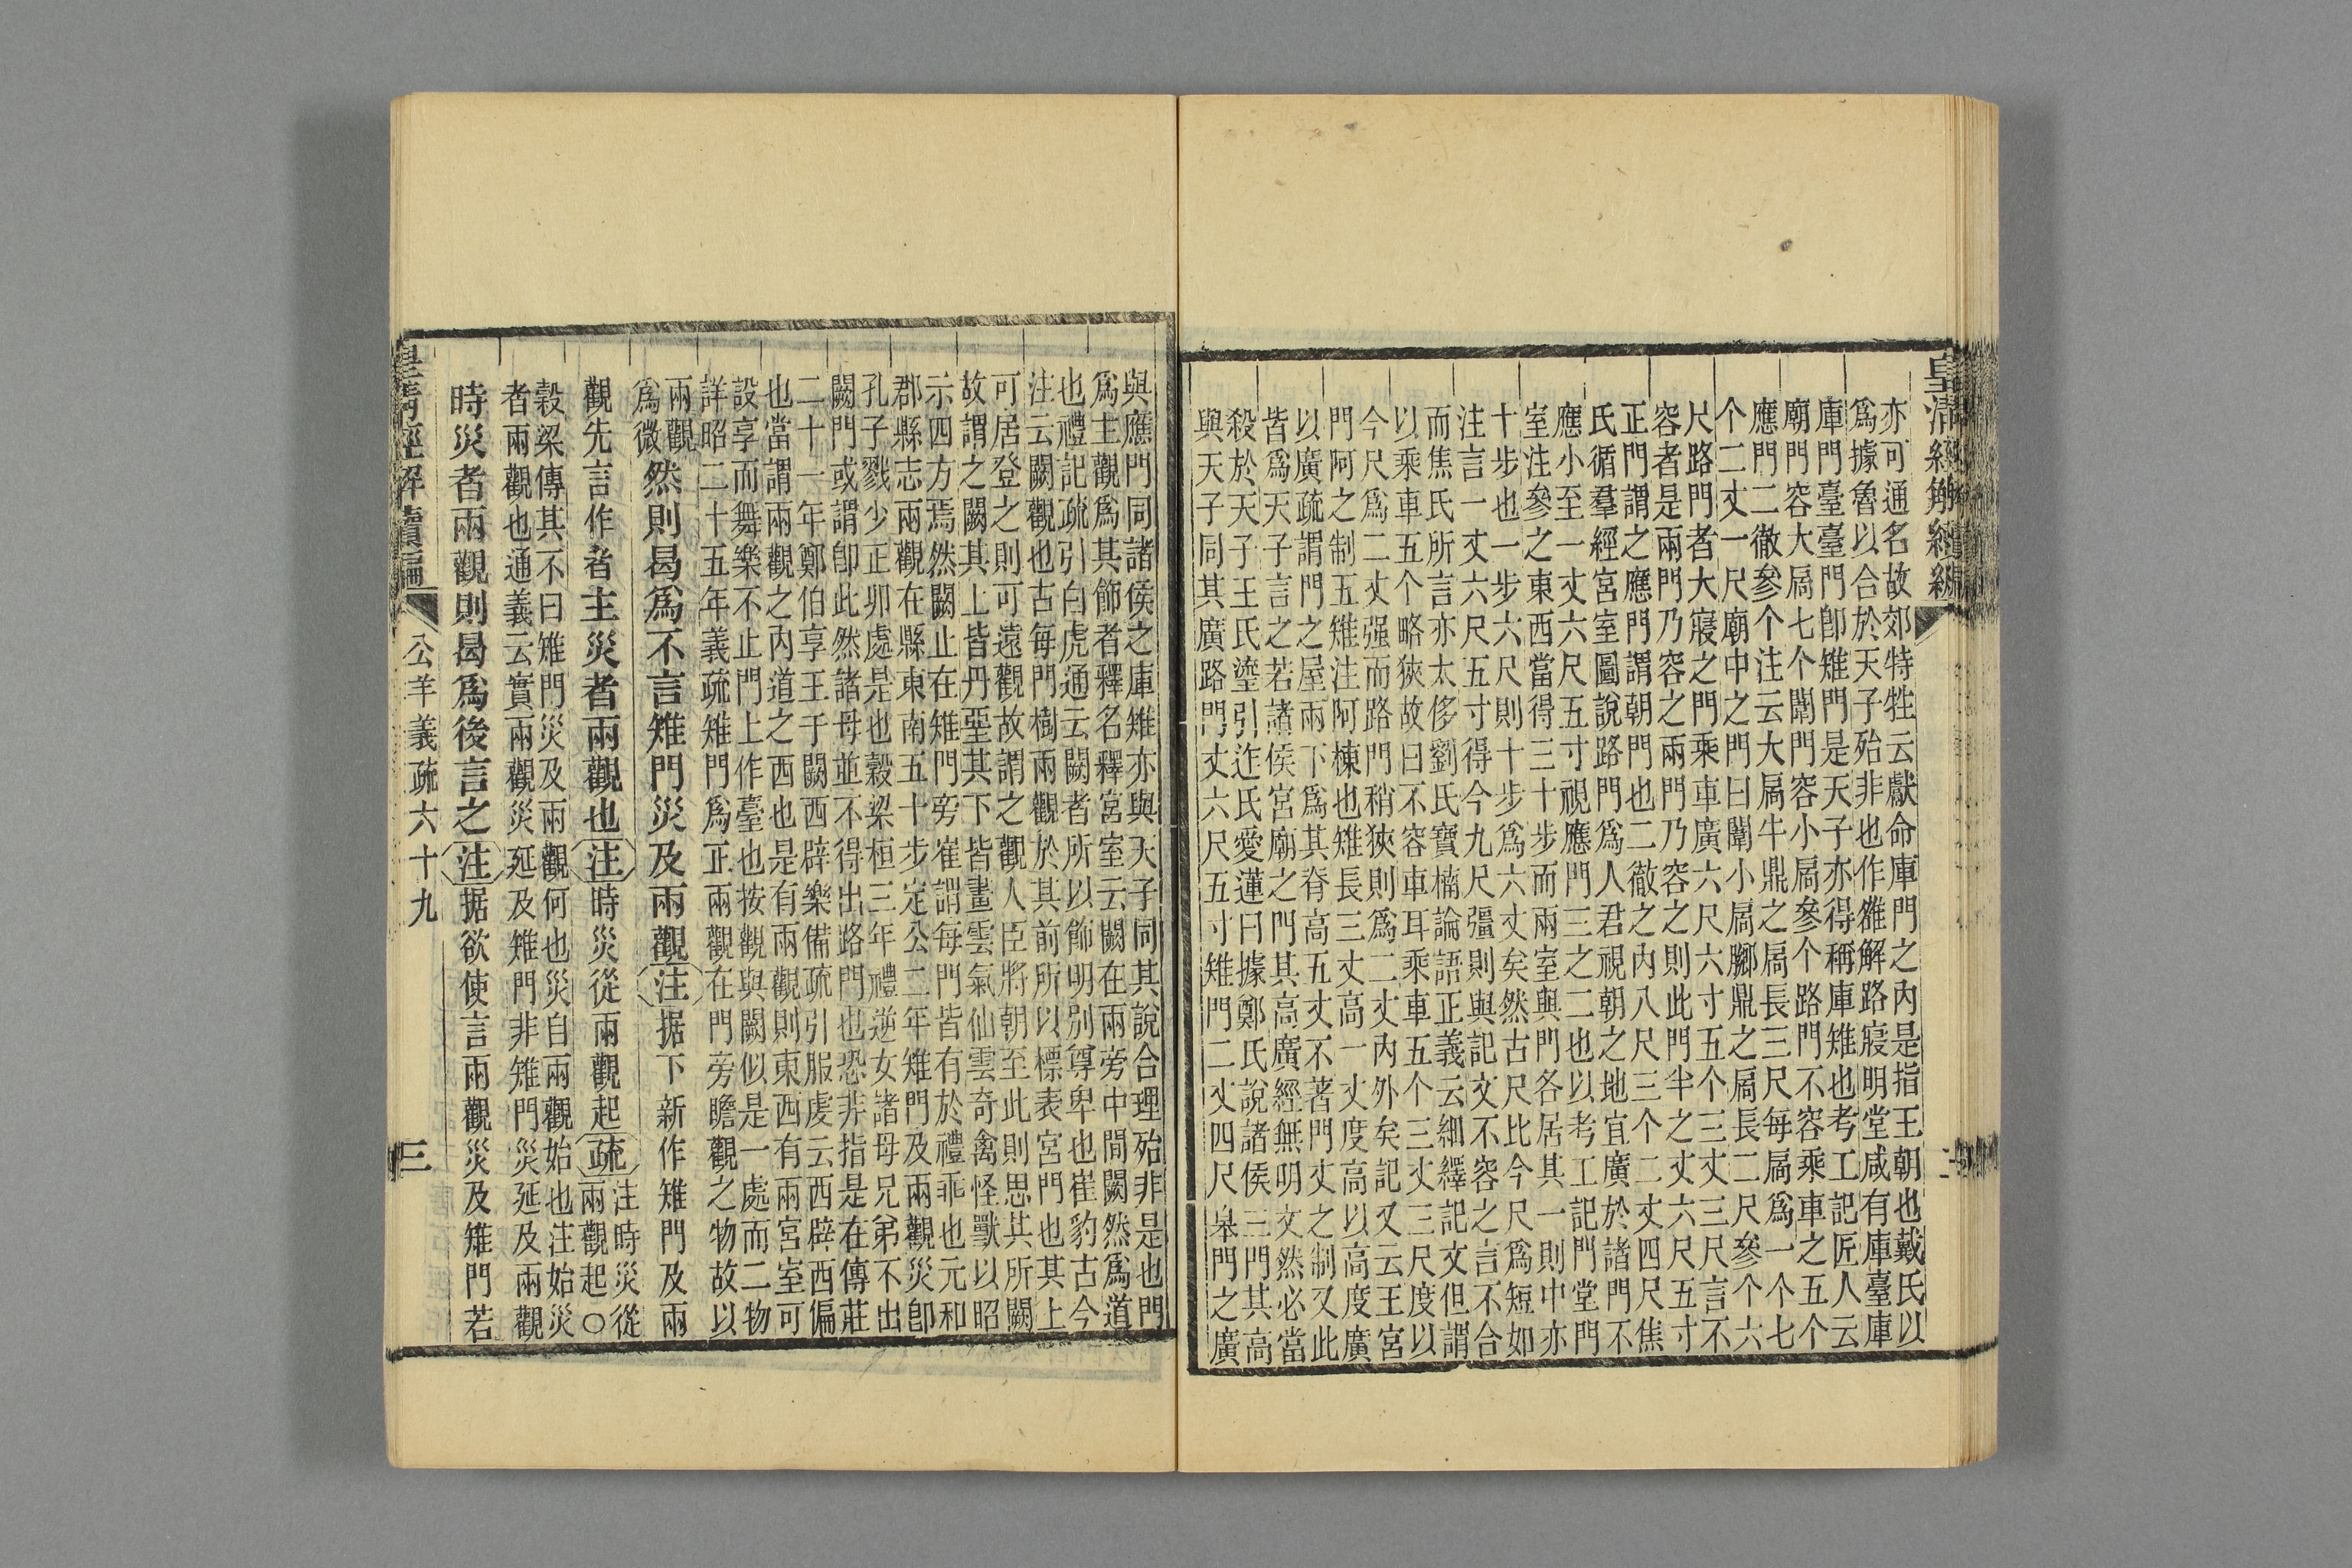 皇清經解續編
亦可通名故郊特牲云獻命庫門之內是指王朝也戴氏以
爲據魯以合於天子殆非也作雒解路寢明堂咸有庫臺庫
庫門臺臺門卽雉門是天子亦得稱庫雉也考工記匠人云
廟門容大扃七个闈門容小扃參个路門不容乘車之五个
應門二徹參个注云大扃牛鼎之扃長三尺每扃爲一个七
个二丈一尺廟中之門曰闈小扃膷鼎之扃長二尺參个六
尺路門者大寢之門乘車廣六尺六寸五个三丈三尺言不
容者是兩門乃容之兩門乃容之則此門半之丈六尺五寸
正門謂之應門謂朝門也二徹之內八尺三个二丈四尺焦
氏循羣經宮室圖說路門爲人君視朝之地宜廣於諸門不
應小至一丈六尺五寸視應門三之二也以考工記門堂門
室注參之東西當得三十步而兩室與門各居其一則中亦
十步也一步六尺則十步爲六丈矣然古尺比今尺爲短如
注言一丈六尺五寸得今九尺彊則與記文不容之言不合
而焦氏所言亦太侈劉氏寶楠論語正義云細繹記文但謂
以乘車五个略狹故曰不容車耳乘車五个三丈三尺度以
今尺爲二丈强而路門稍狹則爲二丈內外矣記又云王宮
門阿之制五雉注阿棟也雉長三丈高一丈度高以高度廣
以廣疏謂門之屋兩下爲其脊高五丈不著門丈之制又此
皆爲天子言之若諸侯宮廟之門其高廣經無明文然必當
殺於天子王氏瑬引迮氏愛蓮曰據鄭氏說諸侯三門其高
與天子同其廣路門丈六尺五寸雉門二丈四尺皋門之廣
二
與應門同諸侯之庫雉亦與天子同其說合理殆非是也門
爲主觀爲其飾者釋名釋宮室云闕在兩旁中間闕然爲道
也禮記疏引白虎通云闕者所以飾明別尊卑也崔豹古今
注云闕觀也古每門樹兩觀於其前所以標表宮門也其上
可居登之則可遠觀故謂之觀人臣將朝至此則思其所闕
故謂之闕其上皆丹堊其下皆畫雲氣仙雲奇禽怪獸以昭
示四方焉然闕止在雉門旁崔謂每門皆有於禮乖也元和
郡縣志兩觀在縣東南五十步定公二年雉門及兩觀災卽
孔子戮少正卯處是也穀梁桓三年禮送女諸母兄弟不出
闕門或謂卽此然諸母並不得出路門也恐非指是在傳莊
二十一年鄭伯享王于闕西辟樂備疏引服虔云西辟西偏
也當謂兩觀之內道之西也是有兩觀則東西有兩宮室可
設享而舞樂不止門上作臺也按觀與闕似是一處而二物
詳昭二十五年義疏雉門爲正兩觀在門旁瞻觀之物故以
兩觀
爲微
然則曷爲不言雉門災及兩觀注据下新作雉門及兩
觀先言作者主災者兩觀也注時災從兩觀起疏注時災從
兩觀起○
穀梁傳其不曰雉門災及兩觀何也災自兩觀始也注始災
者兩觀也通義云實兩觀災延及雉門非雉門災延及兩觀
時災者兩觀則曷爲後言之注据欲使言兩觀災及雉門若
皇清經解續編
公羊義疏六十九
三